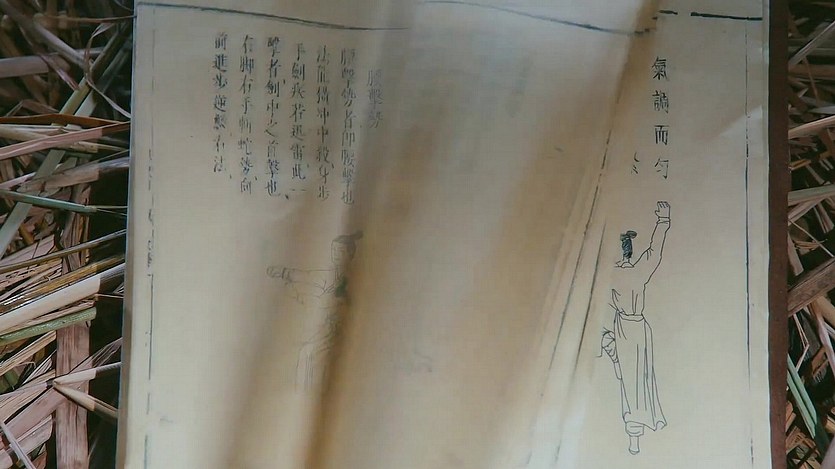 氣調而勻
腰擊勢
腰擊勢者即腰擊也
法能橫冲中殺身步
手劍疾若迅雷此一
擊者劍中之首擊也
右脚右手斬蛇勢向
前進步逆鱗右法